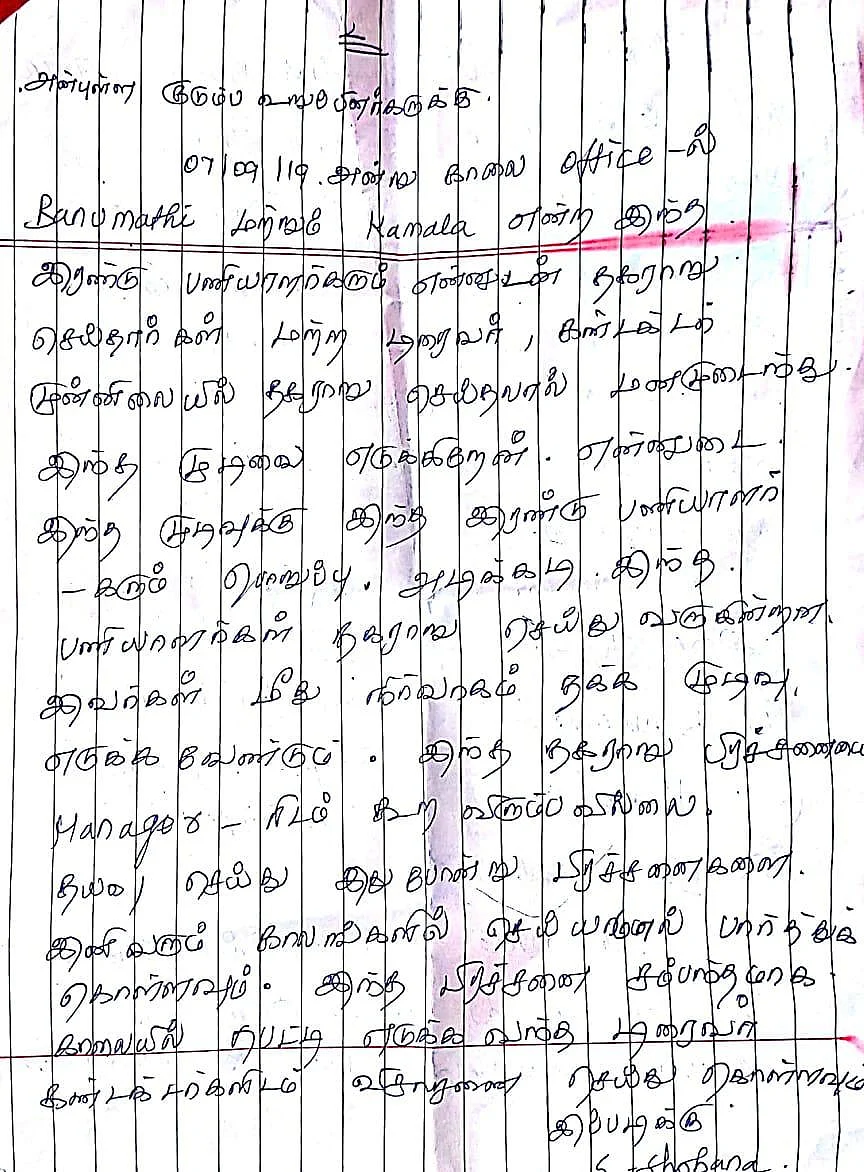 2
அன்புள்ள குடும்ப உறுப்பினர்களுக்கு.
07/09/19. அன்று காலை Office-ல்
Banumathi மற்றும் Kamala என்ற இந்த
இரண்டு பணியாளர்களும் என்னுடன் தகராறு
செய்தார்கள் மற்ற டிரைவர், கண்டக்டர்
முன்னிலையில் தகராறு செய்தவால் மனமுடைந்து.
இந்த முடிவை எடுக்கிறேன். என்னுடை.
இந்த முடிவுக்கு இந்த இரண்டு பணியாளர்
-களும் பொறுப்பு. அடிக்கடி. இந்த.
பணியாளர்கள் தகராறு செய்து வருகின்றன.
இவர்கள் மீது நிர்வாகம் தக்க முடிவு.
எடுக்க வேண்டும். இந்த தகராறு பிரச்சனையை
Manager-ரிடம் கூற விரும்பவில்லை.
தயவு செய்து இது போன்று பிரச்சனைகளை.
இனி வரும் காலங்களில் செய்யாமல் பார்த்துக்
கொள்ளவும். இந்த பிரச்சனை சம்பந்தமாக
காலையில் பெட்டி எடுக்க வந்த டிரைவர்
கண்டக்டர்களிடம் விசாரணை செய்து கொள்ளவும்
இப்படிக்கு
S. Shobana.